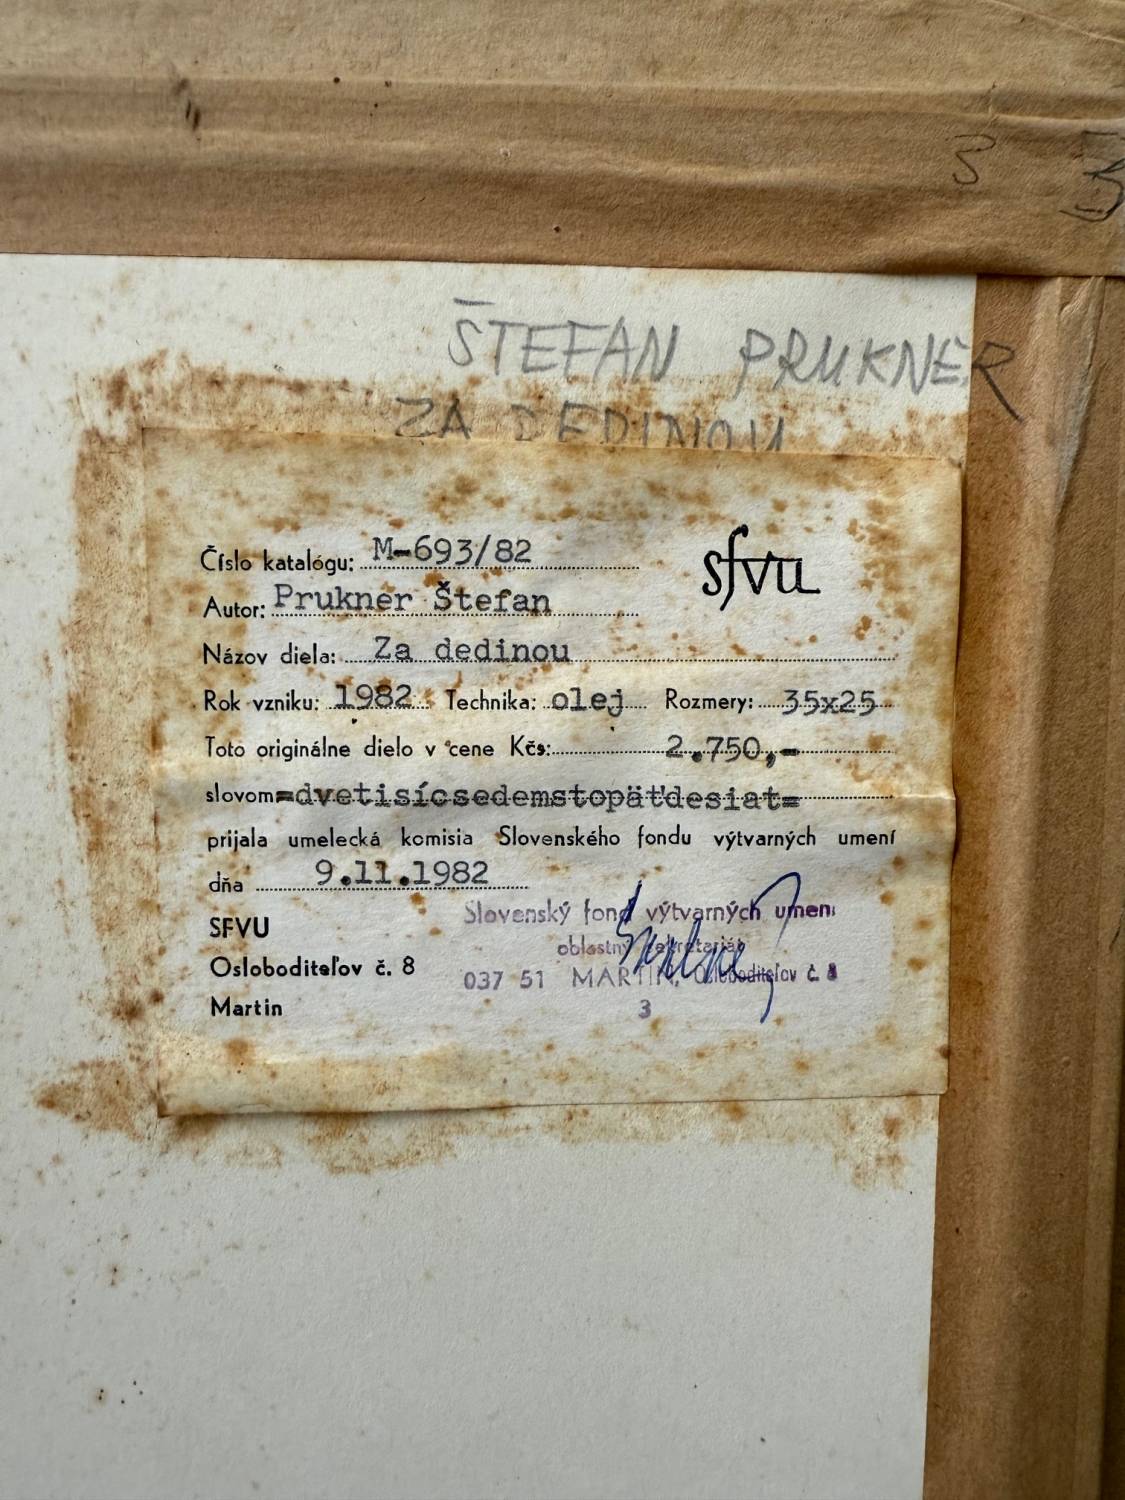 3 3
ŠTEFAN PRUKNER
ZA DEDINOU
sfvu
Číslo katalógu: M-693/82
Autor: Prukner Štefan
Názov diela: Za dedinou
Rok vzniku: 1982 Technika: olej Rozmery: 35x25
Toto originálne dielo v cene Kčs: 2.750,-
slovom=dvetisícsedemstopäťdesiat=
prijala umelecká komisia Slovenského fondu výtvarných umení
dňa 9.11.1982
SFVU
Osloboditeľov č. 8
Martin
Slovenský fond výtvarných umení
oblastný sekretariát
037 51 MARTIN, Osloboditeľov č. 8
3